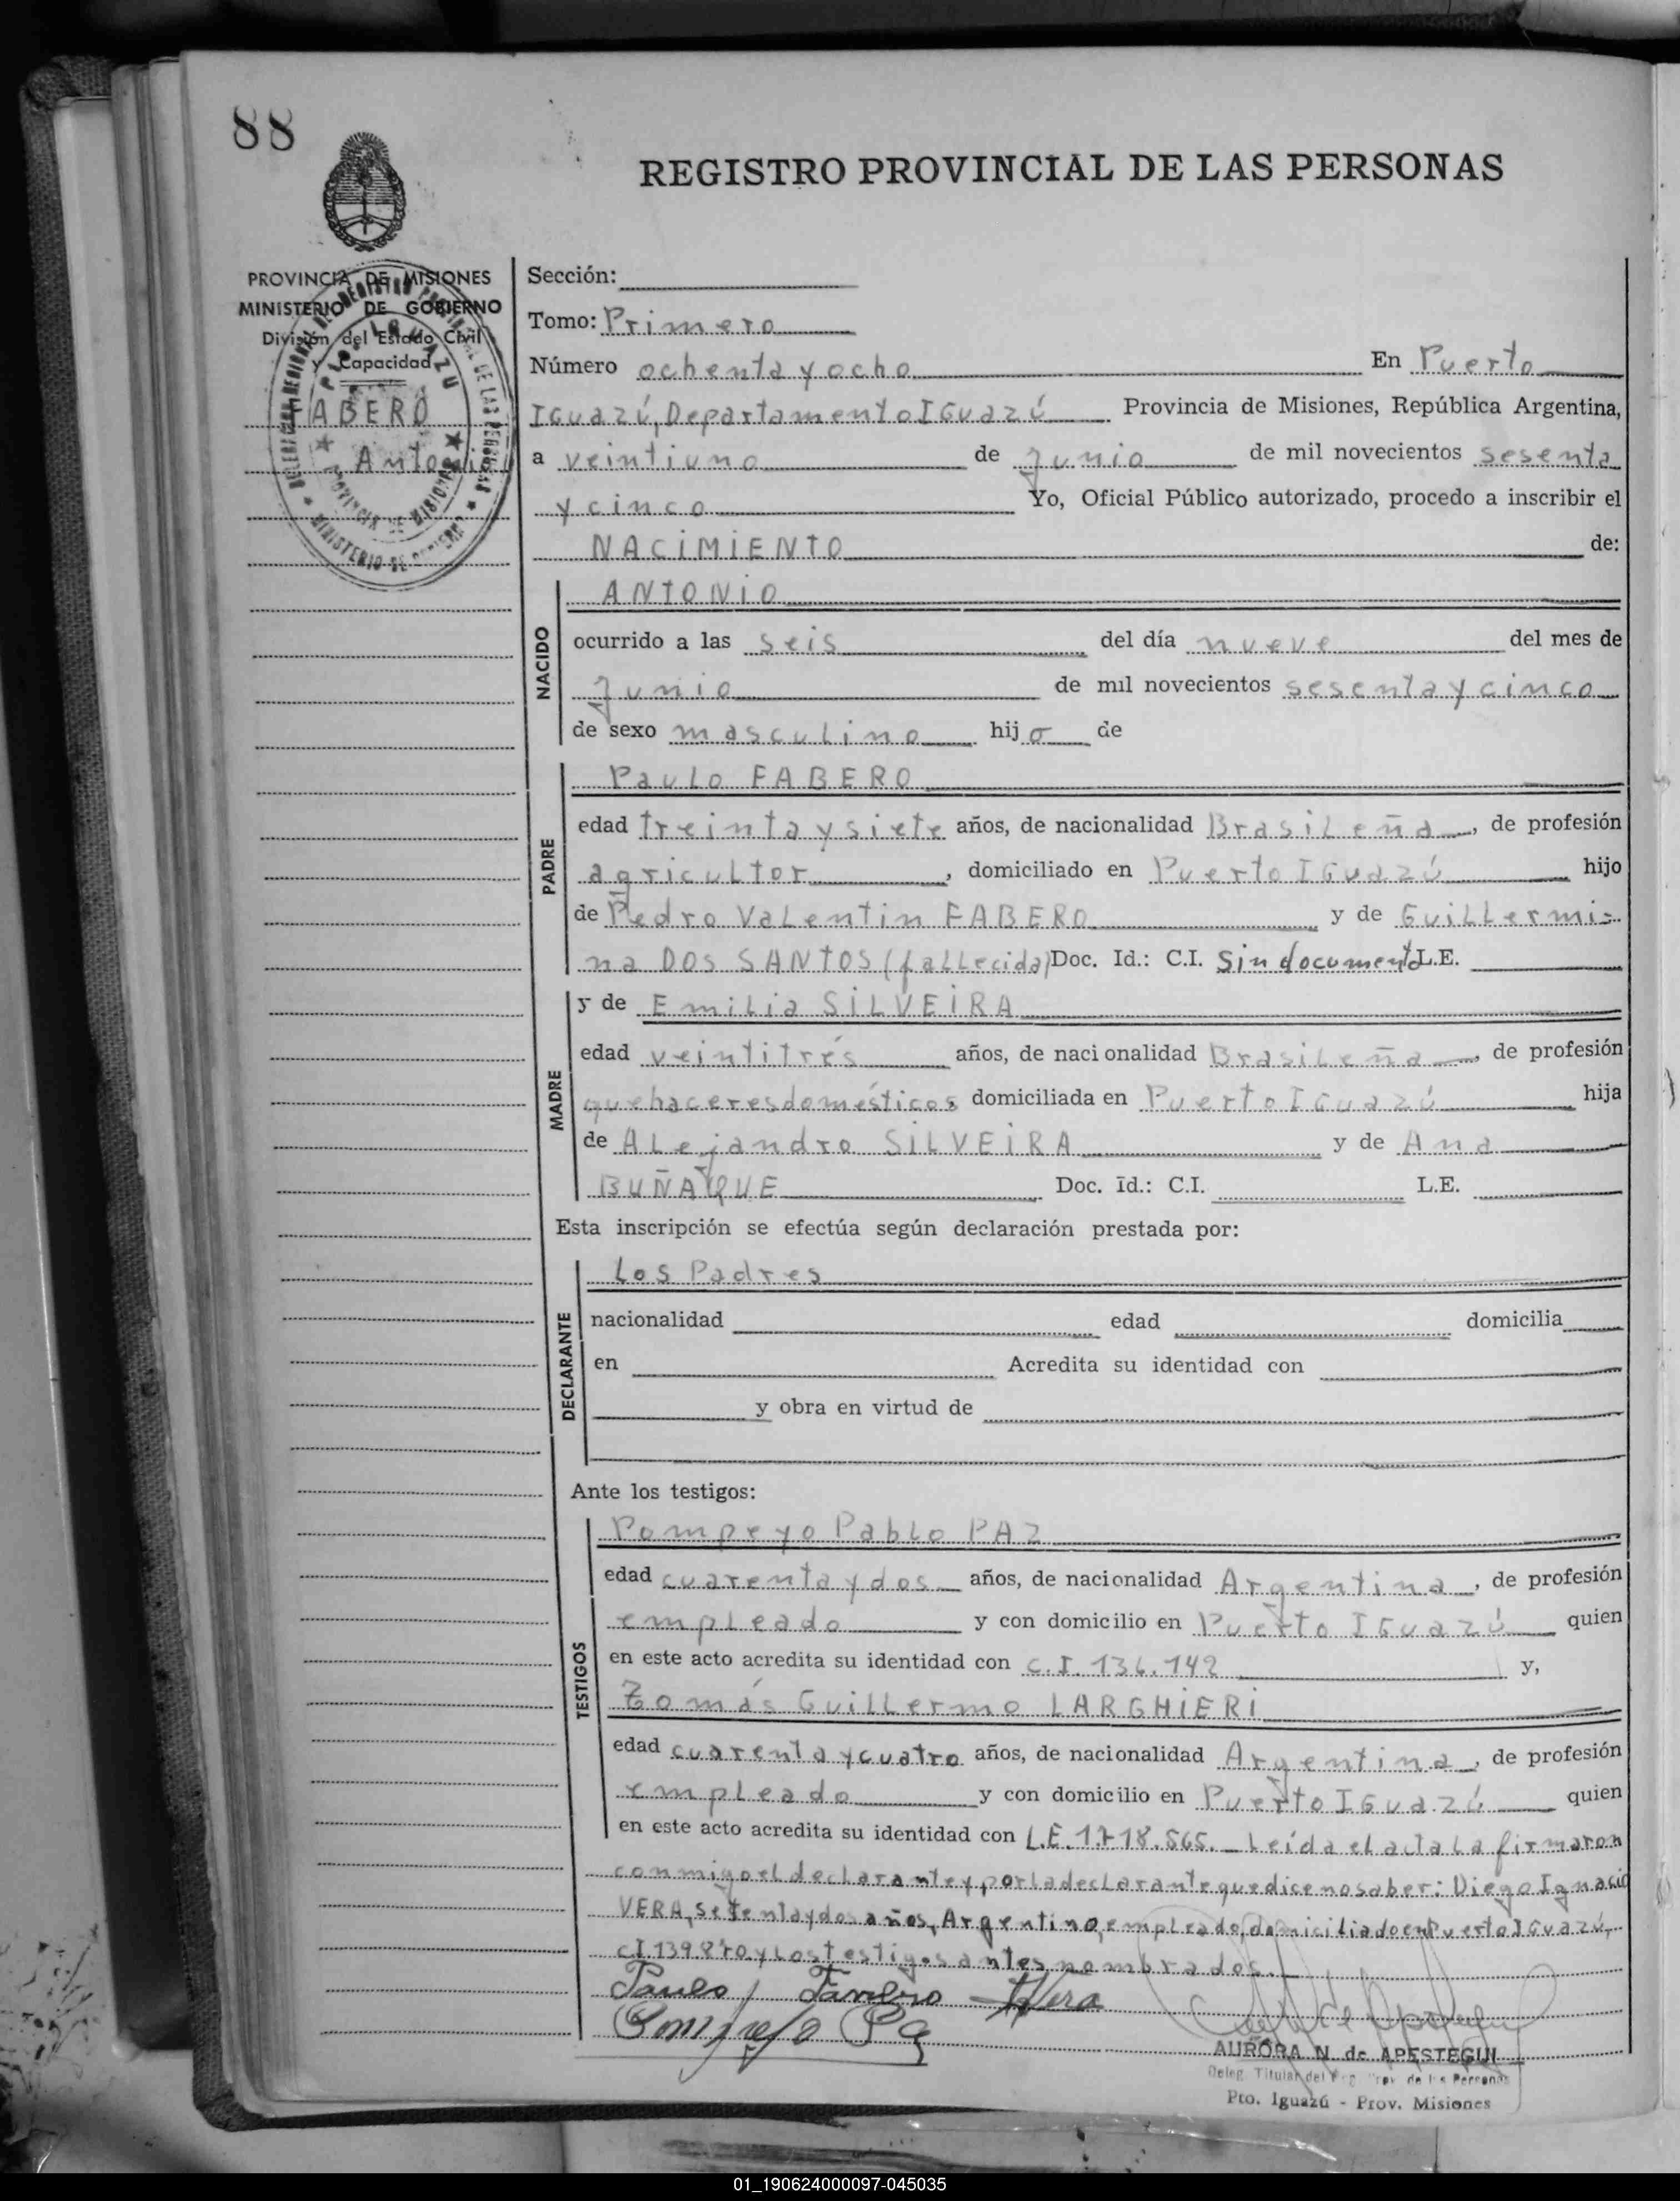 88
REGISTRO PROVINCIAL DE LAS PERSONAS
PROVINCIA DE MISIONES
MINISTERIO DE GOBIERNO
División del Estado Civil
y Capacidad
FABERO
Antonio
Sección:
Tomo: Primero
Número ochenta y ocho En Puerto
IGuazú, Departamento IGuazú Provincia de Misiones, República Argentina,
a veintiuno de Junio de mil novecientos sesenta
y cinco Yo, Oficial Público autorizado, procedo a inscribir el
NACIMIENTO de:
NACIDO
ANTONIO
ocurrido a las seis del día nueve del mes de
Junio de mil novecientos sesenta y cinco
de sexo masculino hijo de
PADRE
Paulo FABERO
edad treinta y siete años, de nacionalidad Brasileña, de profesión
agricultor, domiciliado en Puerto IGuazú hijo
de Pedro Valentin FABERO y de Guillermi-
na DOS SANTOS (fallecida) Doc. Id.: C.I. Sin documento L.E.
MADRE
y de Emilia SILVEIRA
edad veintitrés años, de nacionalidad Brasileña, de profesión
quehaceres domésticos, domiciliada en Puerto IGuazú hija
de Alejandro SILVEIRA y de Ana
BUÑAQUE Doc. Id.: C.I. L.E.
Esta inscripción se efectúa según declaración prestada por:
DECLARANTE
Los Padres
nacionalidad edad domicilia
en Acredita su identidad con
y obra en virtud de
Ante los testigos:
TESTIGOS
Pompeyo Pablo PAZ
edad cuarenta y dos años, de nacionalidad Argentina, de profesión
empleado y con domicilio en Puerto IGuazú quien
en este acto acredita su identidad con C.I. 136.142 y,
Tomás Guillermo LARGHIERI
edad cuarenta y cuatro años, de nacionalidad Argentina, de profesión
empleado y con domicilio en Puerto IGuazú quien
en este acto acredita su identidad con L.E. 1.718.565. Leída el acta la firmaron
conmigo el declarante y por la declarante que dice no saber: Diego Ignacio
VERA, setenta y dos años, Argentino, empleado, domiciliado en Puerto IGuazú,
CI 139.870 y los testigos antes nombrados.
Paulo Favero Vera
Pompeyo Paz
AURORA N. de APESTEGUI
Deleg. Titular del Reg. Prov. de las Personas
Pto. Iguazú - Prov. Misiones
01_190624000097-045035